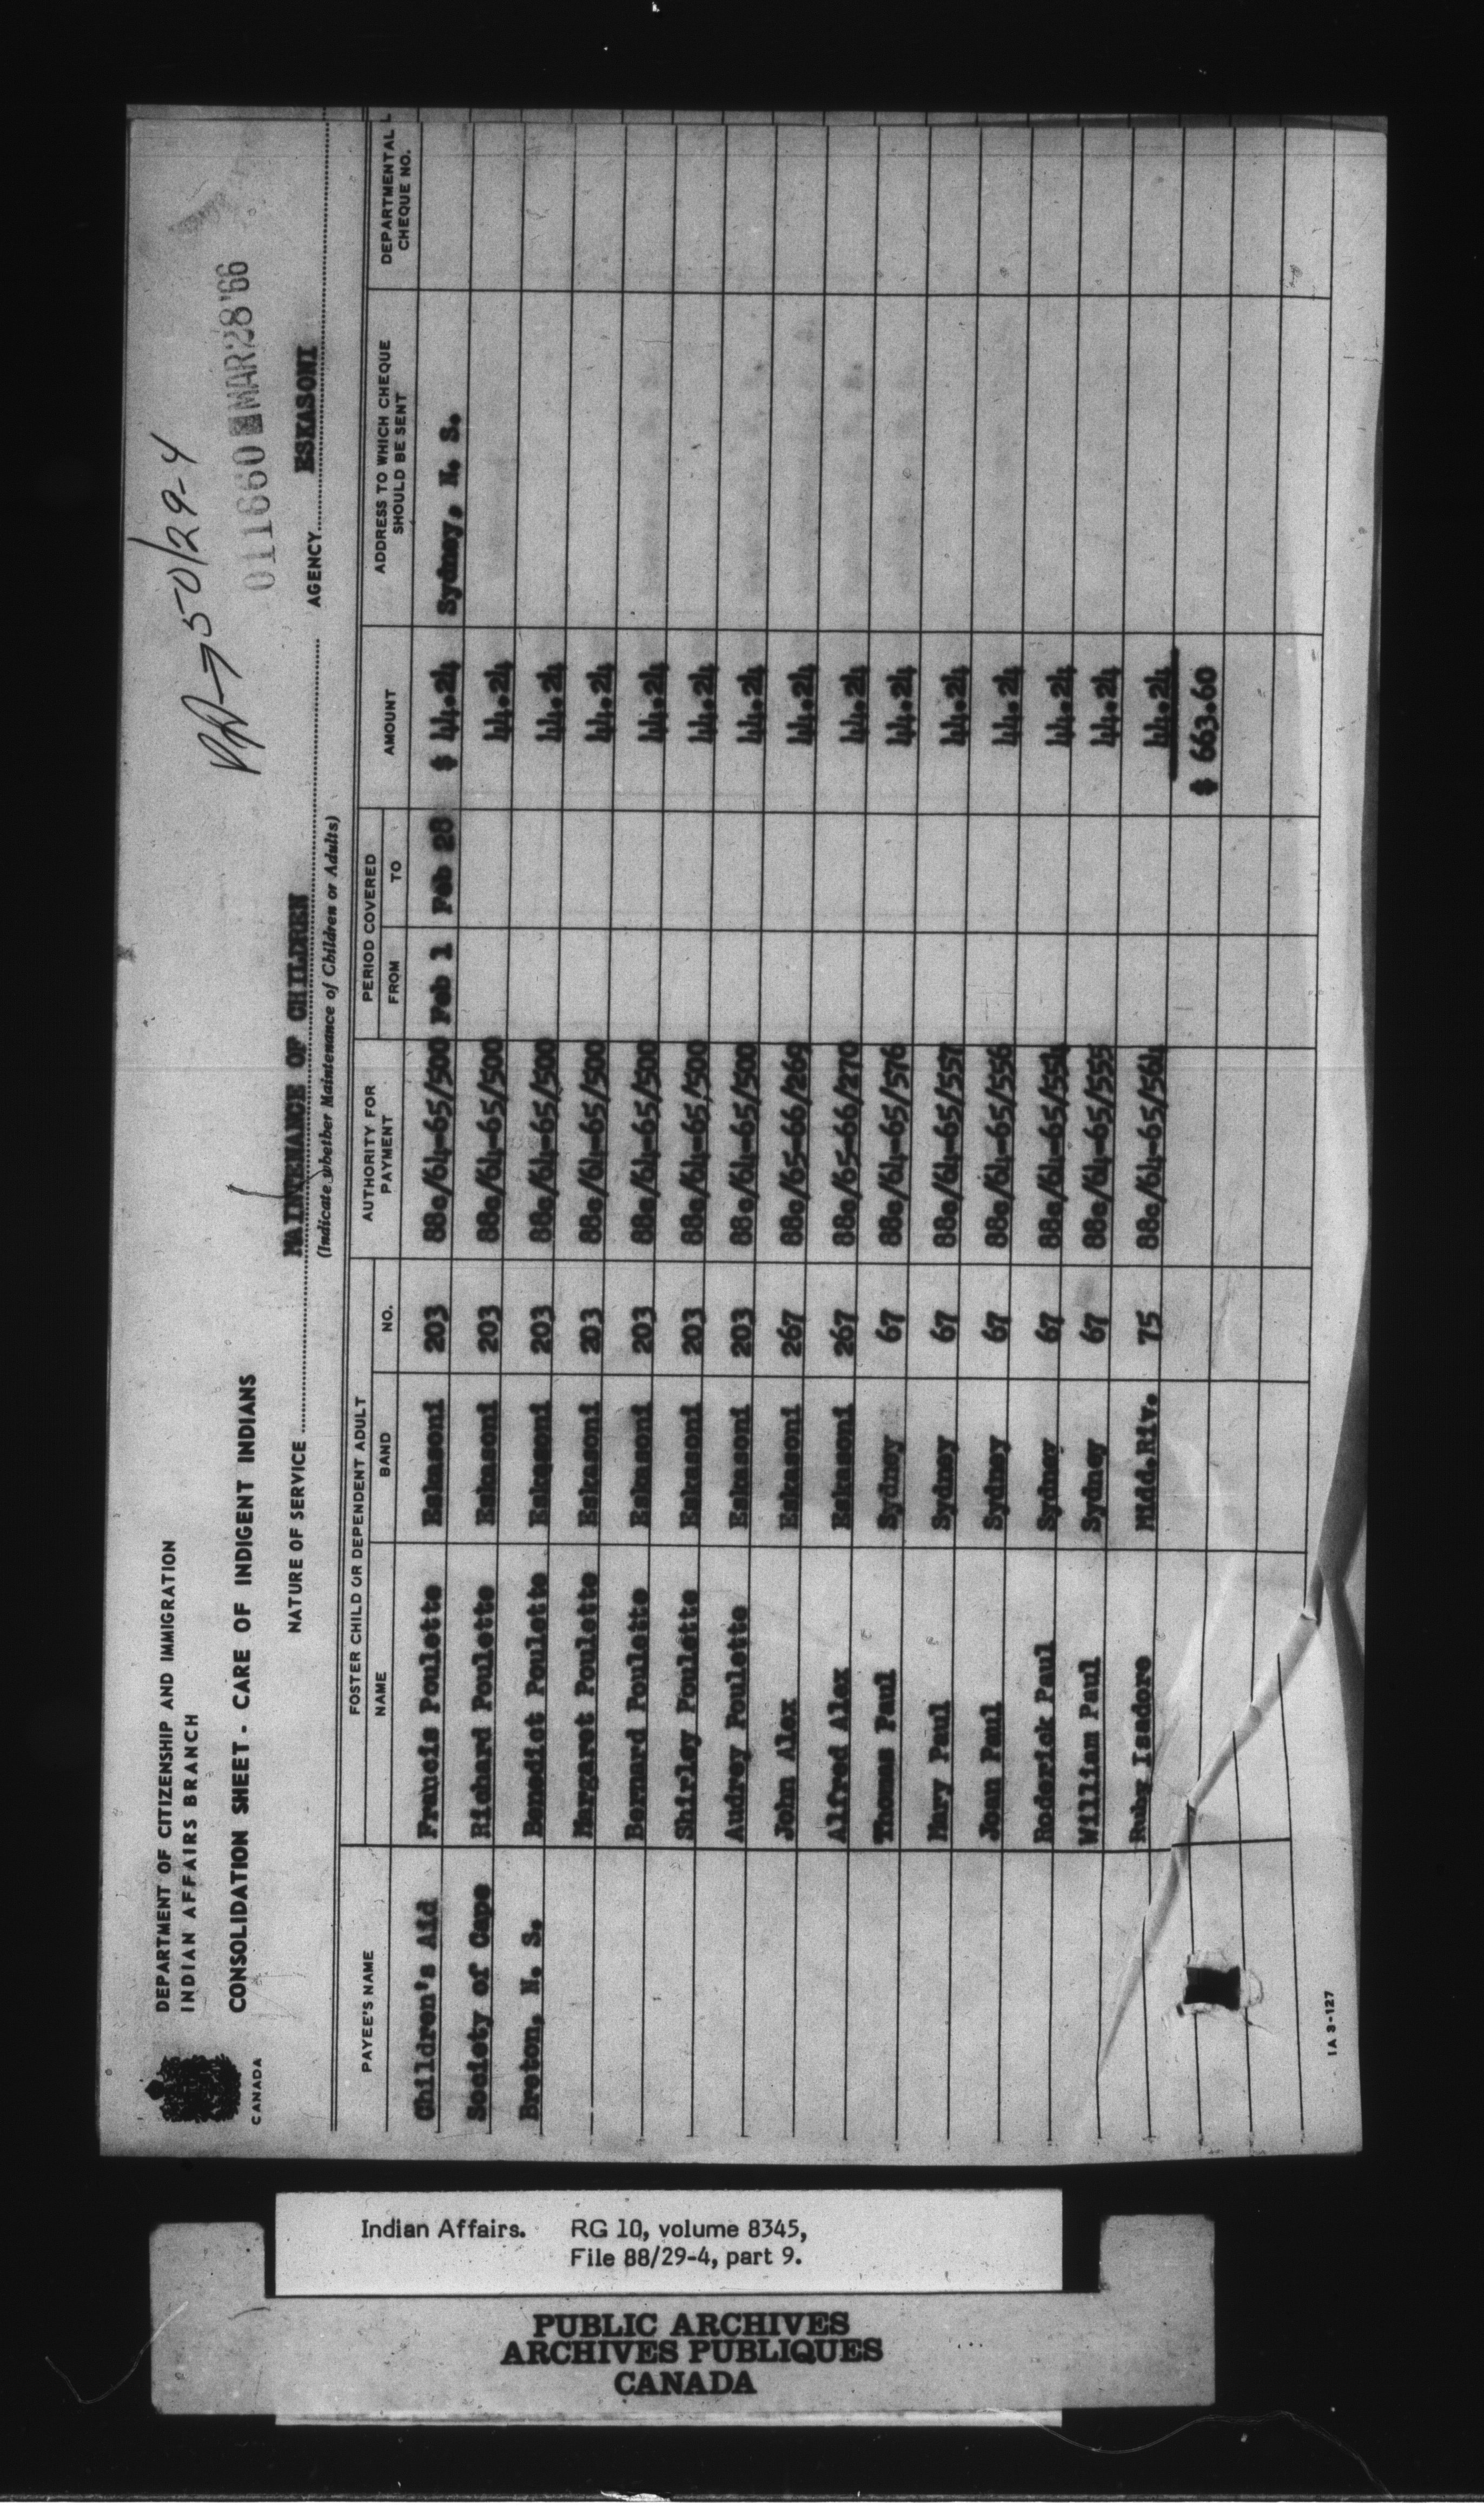 DEPARTMENT OF CITIZENSHIP AND IMMIGRATION
INDIAN AFFAIRS BRANCH
CANADA
CONSOLIDATION SHEET - CARE OF INDIGENT INDIANS
50/29-4
011660 MAR 28 '66
NATURE OF SERVICE MAINTENANCE OF CHILDREN AGENCY ESKASONI
(Indicate whether Maintenance of Children or Adults)
PAYEE'S NAME FOSTER CHILD OR DEPENDENT ADULT AUTHORITY FOR PAYMENT PERIOD COVERED AMOUNT ADDRESS TO WHICH CHEQUE SHOULD BE SENT DEPARTMENTAL CHEQUE NO.
NAME BAND NO. FROM TO
Children's Aid Francis Poulette Eskasoni 203 88c/64-65/500 Feb 1 Feb 28 $ 44.24 Sydney, N. S.
Society of Cape Richard Poulette Eskasoni 203 88c/64-65/500 44.24
Breton, N. S. Benedict Poulette Eskasoni 203 88c/64-65/500 44.24
Margaret Poulette Eskasoni 203 88c/64-65/500 44.24
Bernard Poulette Eskasoni 203 88c/64-65/500 44.24
Shirley Poulette Eskasoni 203 88c/64-65/500 44.24
Audrey Poulette Eskasoni 203 88c/64-65/500 44.24
John Alex Eskasoni 267 88c/65-66/269 44.24
Alfred Alex Eskasoni 267 88c/65-66/270 44.24
Thomas Paul Sydney 67 88c/64-65/576 44.24
Mary Paul Sydney 67 88c/64-65/557 44.24
Joan Paul Sydney 67 88c/64-65/556 44.24
Roderick Paul Sydney 67 88c/64-65/554 44.24
William Paul Sydney 67 88c/64-65/555 44.24
Ruby Isadore Midd.Riv. 75 88c/64-65/564 44.24
$ 663.60
IA 3-127
Indian Affairs. RG 10, volume 8345,
File 88/29-4, part 9.
PUBLIC ARCHIVES
ARCHIVES PUBLIQUES
CANADA